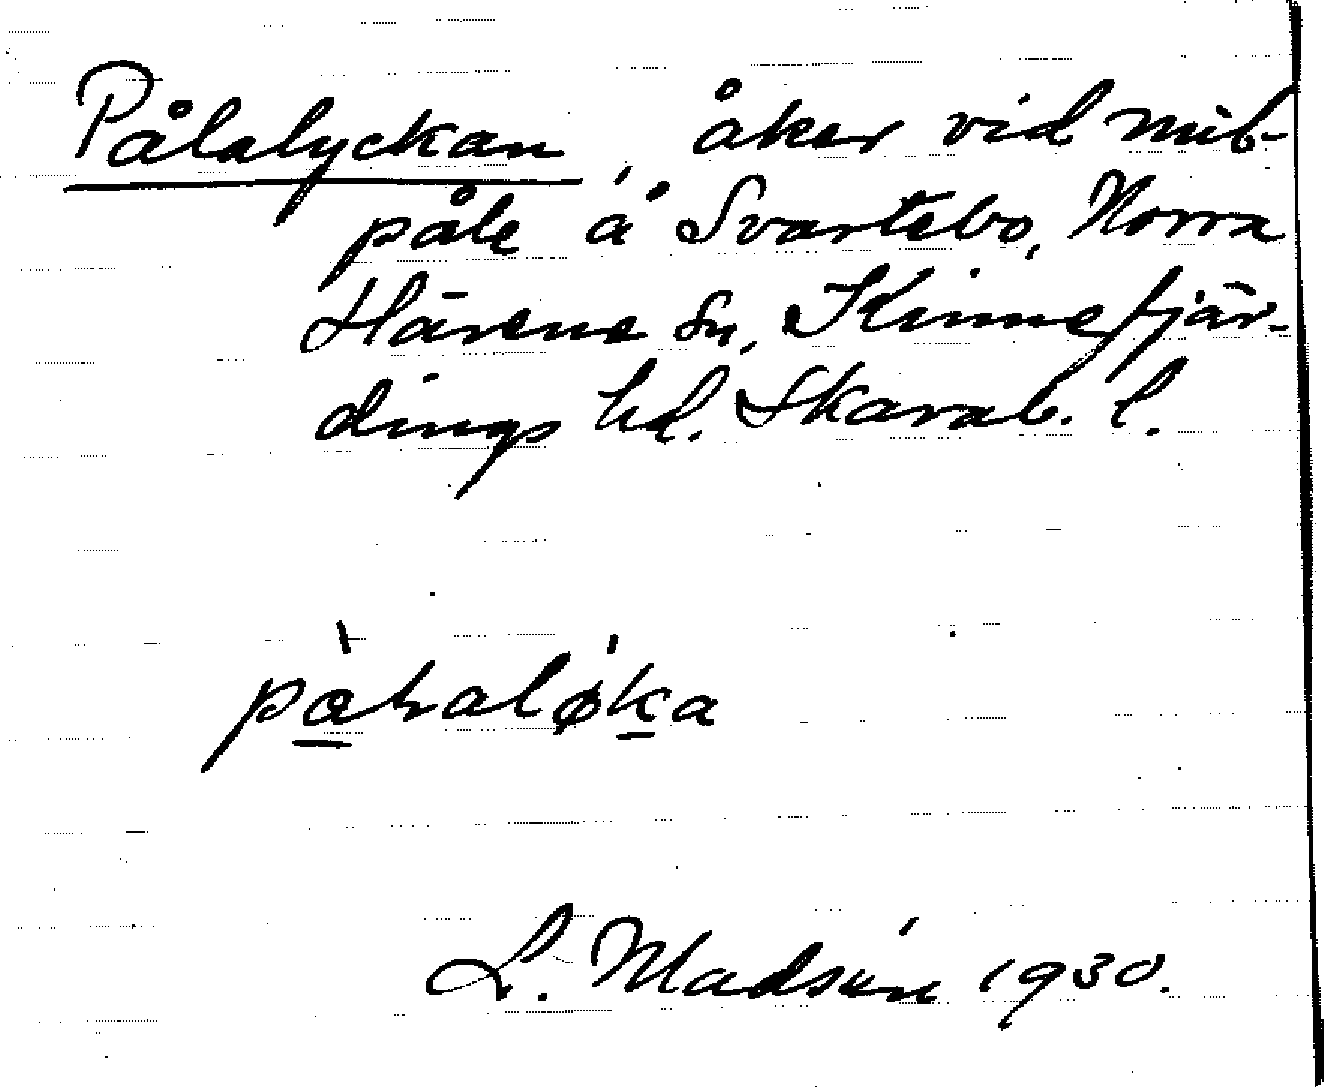 Pålalyckan, åker vid mil-
påle å Svartebo, Norra
Härene sn, Kinnefjär-
dings hd. Skarab. l.
L. Madsén 1930.